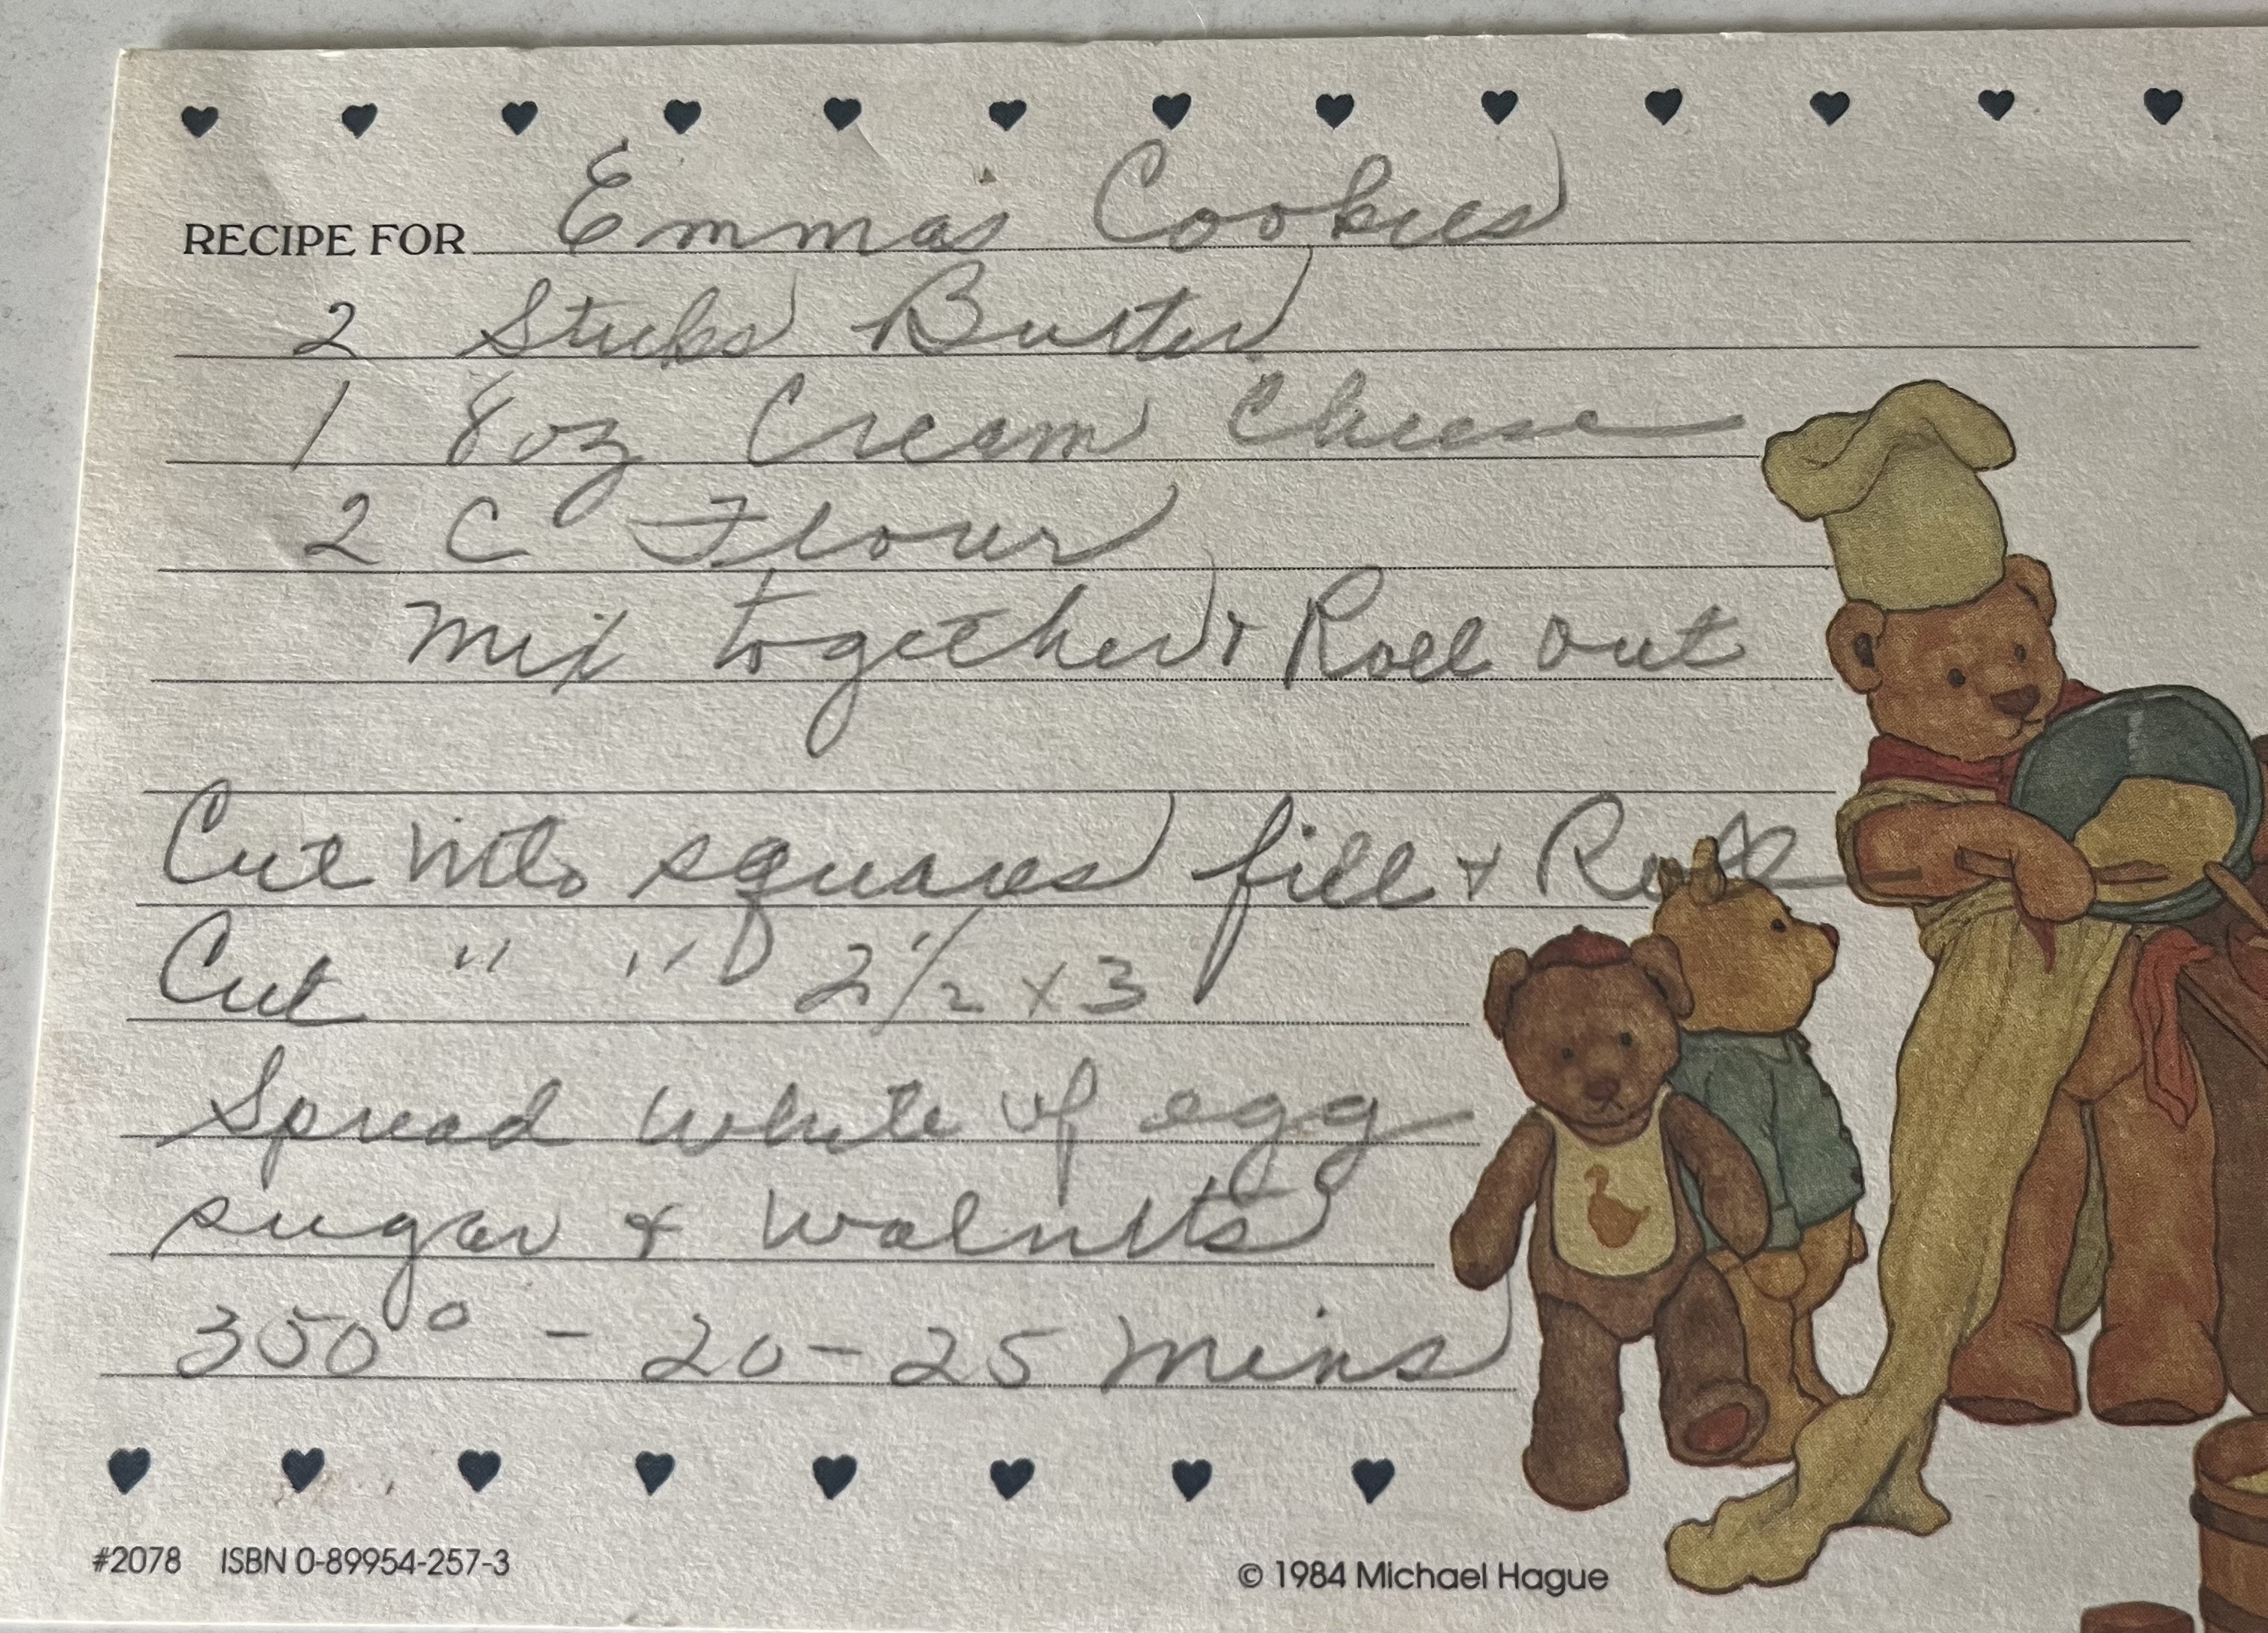 RECIPE FOR Emma's Cookies
2 Sticks Butter
1 8oz Cream Cheese
2 C Flour
Mix together & Roll out
Cut into squares fill & Roll
Cut " " 2 1/2 x 3
Spread white of egg
sugar & walnuts
350° - 20 - 25 mins
#2078 ISBN 0-89954-257-3
© 1984 Michael Hague